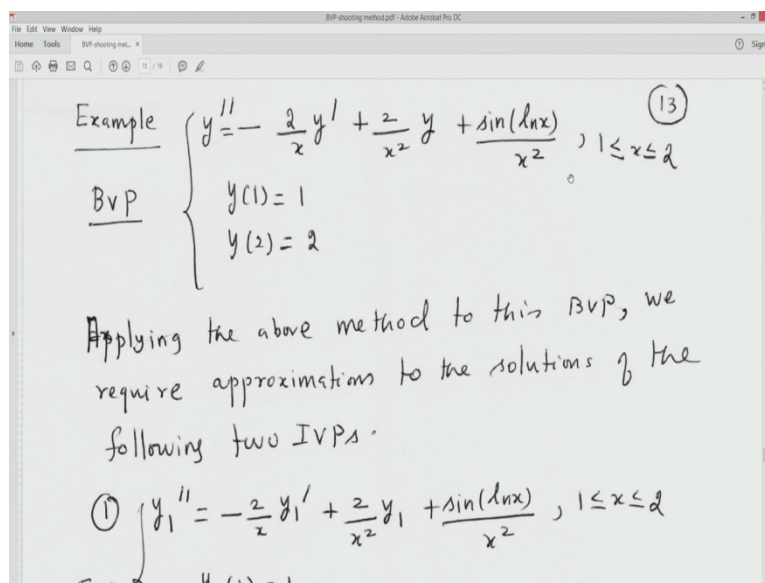 BVP-shooting method.pdf - Adobe Acrobat Pro DC
File Edit View Window Help
Home Tools BVP-shooting met... × Sign
15 / 19
13
Example y'' = - 2/x y' + 2/x² y + sin(lnx)/x² , 1 ≤ x ≤ 2
BVP y(1) = 1
y(2) = 2
Applying the above method to this BVP, we
require approximations to the solutions of the
following two IVPs.
① y₁'' = - 2/x y₁' + 2/x² y₁ + sin(lnx)/x² , 1 ≤ x ≤ 2